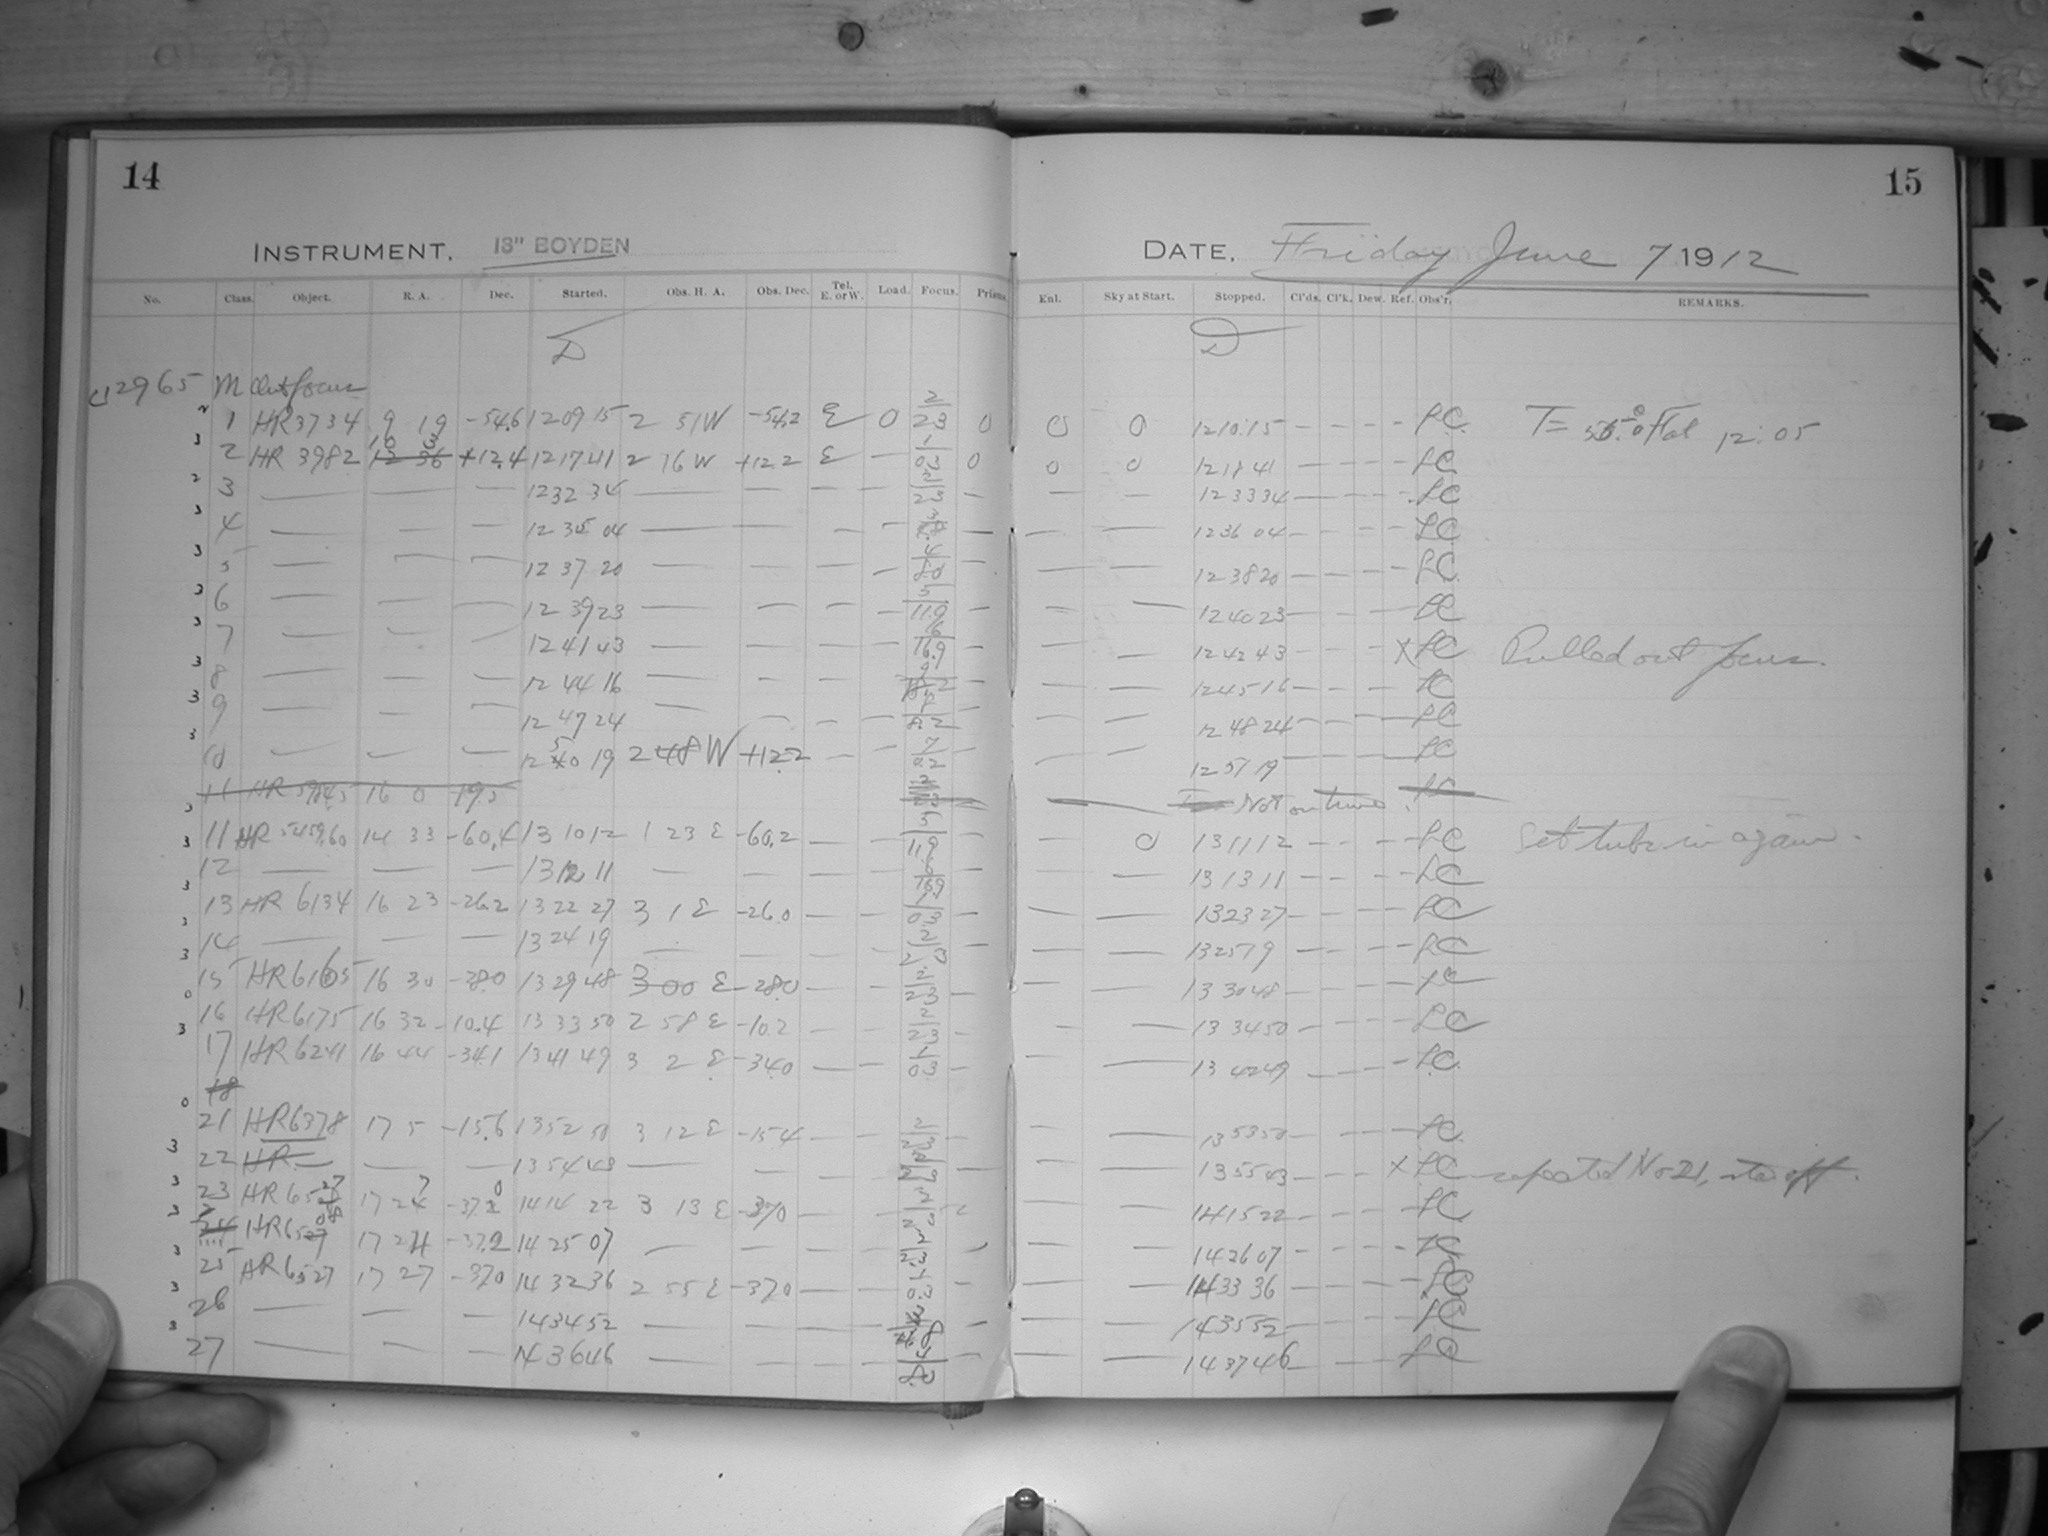 14
15
INSTRUMENT. 13" BOYDEN
DATE. Friday June 7 1912
No. Class. Object. R. A. Dec. Started. Obs. H. A. Obs. Dec. Tel. E. or W. Load. Focus. Prisms.
Enl. Sky at Start. Stopped. Cl'ds. Cl'k. Dew. Ref. Obs'r. REMARKS.
D D
12965 M Out focus
1 HR 3734 9 19 -54.6 12 09 15 2 51 W -54.2 E 0 2/23 0 0 0 12 10 15 - - - - LC T= 12:05
2 HR 3982 10 3 +12.4 12 17 41 2 16 W +12.2 E — 0 0 0 12 18 41 - - - - LC
3 — — — 12 32 34 — — — — 12 33 34 - - - - LC
4 — — — 12 35 04 — — — — 12 36 04 - - - - LC
5 — — — 12 37 20 — — — — 12 38 20 - - - - LC
6 — — — 12 39 23 — — — — 11.9 12 40 23 - - - - LC
7 — — — 12 41 43 — — — — 16.9 12 42 43 - - - X LC Pulled out focus.
8 — — — 12 44 16 — — — — 12 45 16 - - - - LC
9 — — — 12 47 24 — — — — 8.2 12 48 24 - - - - LC
10 — — — 12 50 19 2 48 W +12.2 — — 12 51 19 - - - - LC
11 HR 16 0 19.5 Not on time. LC
11 HR 5459,60 14 33 -60.4 13 10 12 1 23 E -60.2 — — 11.9 — 0 13 11 12 - - - - LC Set tube in again.
12 — — — 13 12 11 — — — — 16.9 13 13 11 - - - - LC
13 HR 6134 16 23 -26.2 13 22 27 3 1 E -26.0 — — 13 23 27 - - - - LC
14 — — — 13 24 19 — — — — 13 25 19 - - - - LC
15 HR 6165 16 30 -28.0 13 29 48 3 00 E -28.0 — — 13 30 48 - - - - LC
16 HR 6175 16 32 -10.4 13 33 50 2 58 E -10.2 — — 13 34 50 - - - - LC
17 HR 6241 16 44 -34.1 13 41 49 3 2 E -34.0 — — 13 42 49 - - - - LC
18
21 HR 6378 17 5 -15.6 13 52 50 3 12 E -15.4 — — 13 53 50 - - - - LC
22 HR — — — 13 54 48 — — — — 13 55 03 - - - X LC repeated No 21, star off.
23 HR 6527 17 27 -37.0 14 14 22 3 13 E -37.0 — — 14 15 22 - - - - LC
24 HR 6508 17 24 -37.2 14 25 07 — — — — 14 26 07 - - - - LC
25 HR 6527 17 27 -37.0 14 32 36 2 55 E -37.0 — — 14 33 36 - - - - LC
26 — — — 14 34 52 — — — — 14 35 52 - - - - LC
27 — — — 14 36 46 — — — — 14 37 46 - - - - LC